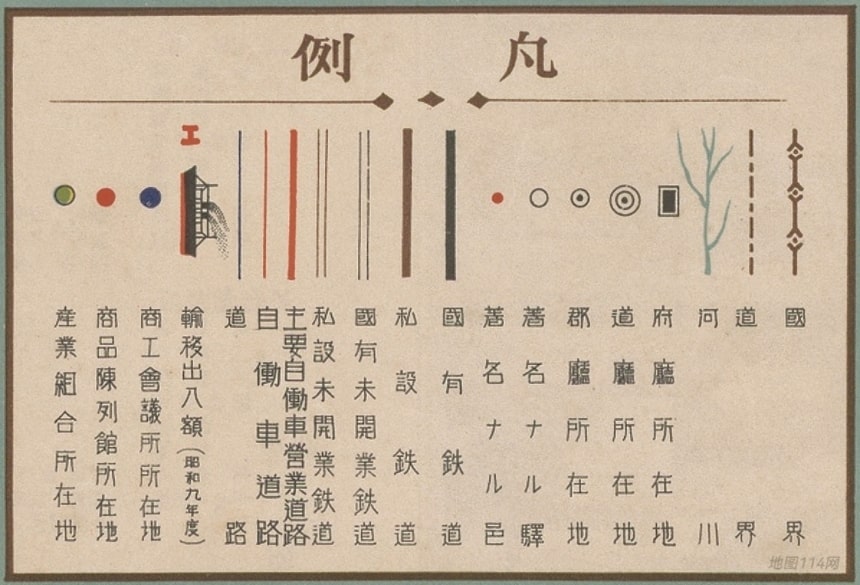 凡例
國界
道界
河川
府廳所在地
道廳所在地
郡廳所在地
著名ナル驛
著名ナル邑
國有鉄道
私設鉄道
國有未開業鉄道
私設未開業鉄道
主要自働車営業道路
自働車道路
道路
輸移出入額(昭和九年度)
商工會議所所在地
商品陳列館所在地
産業組合所在地
工
地图114网